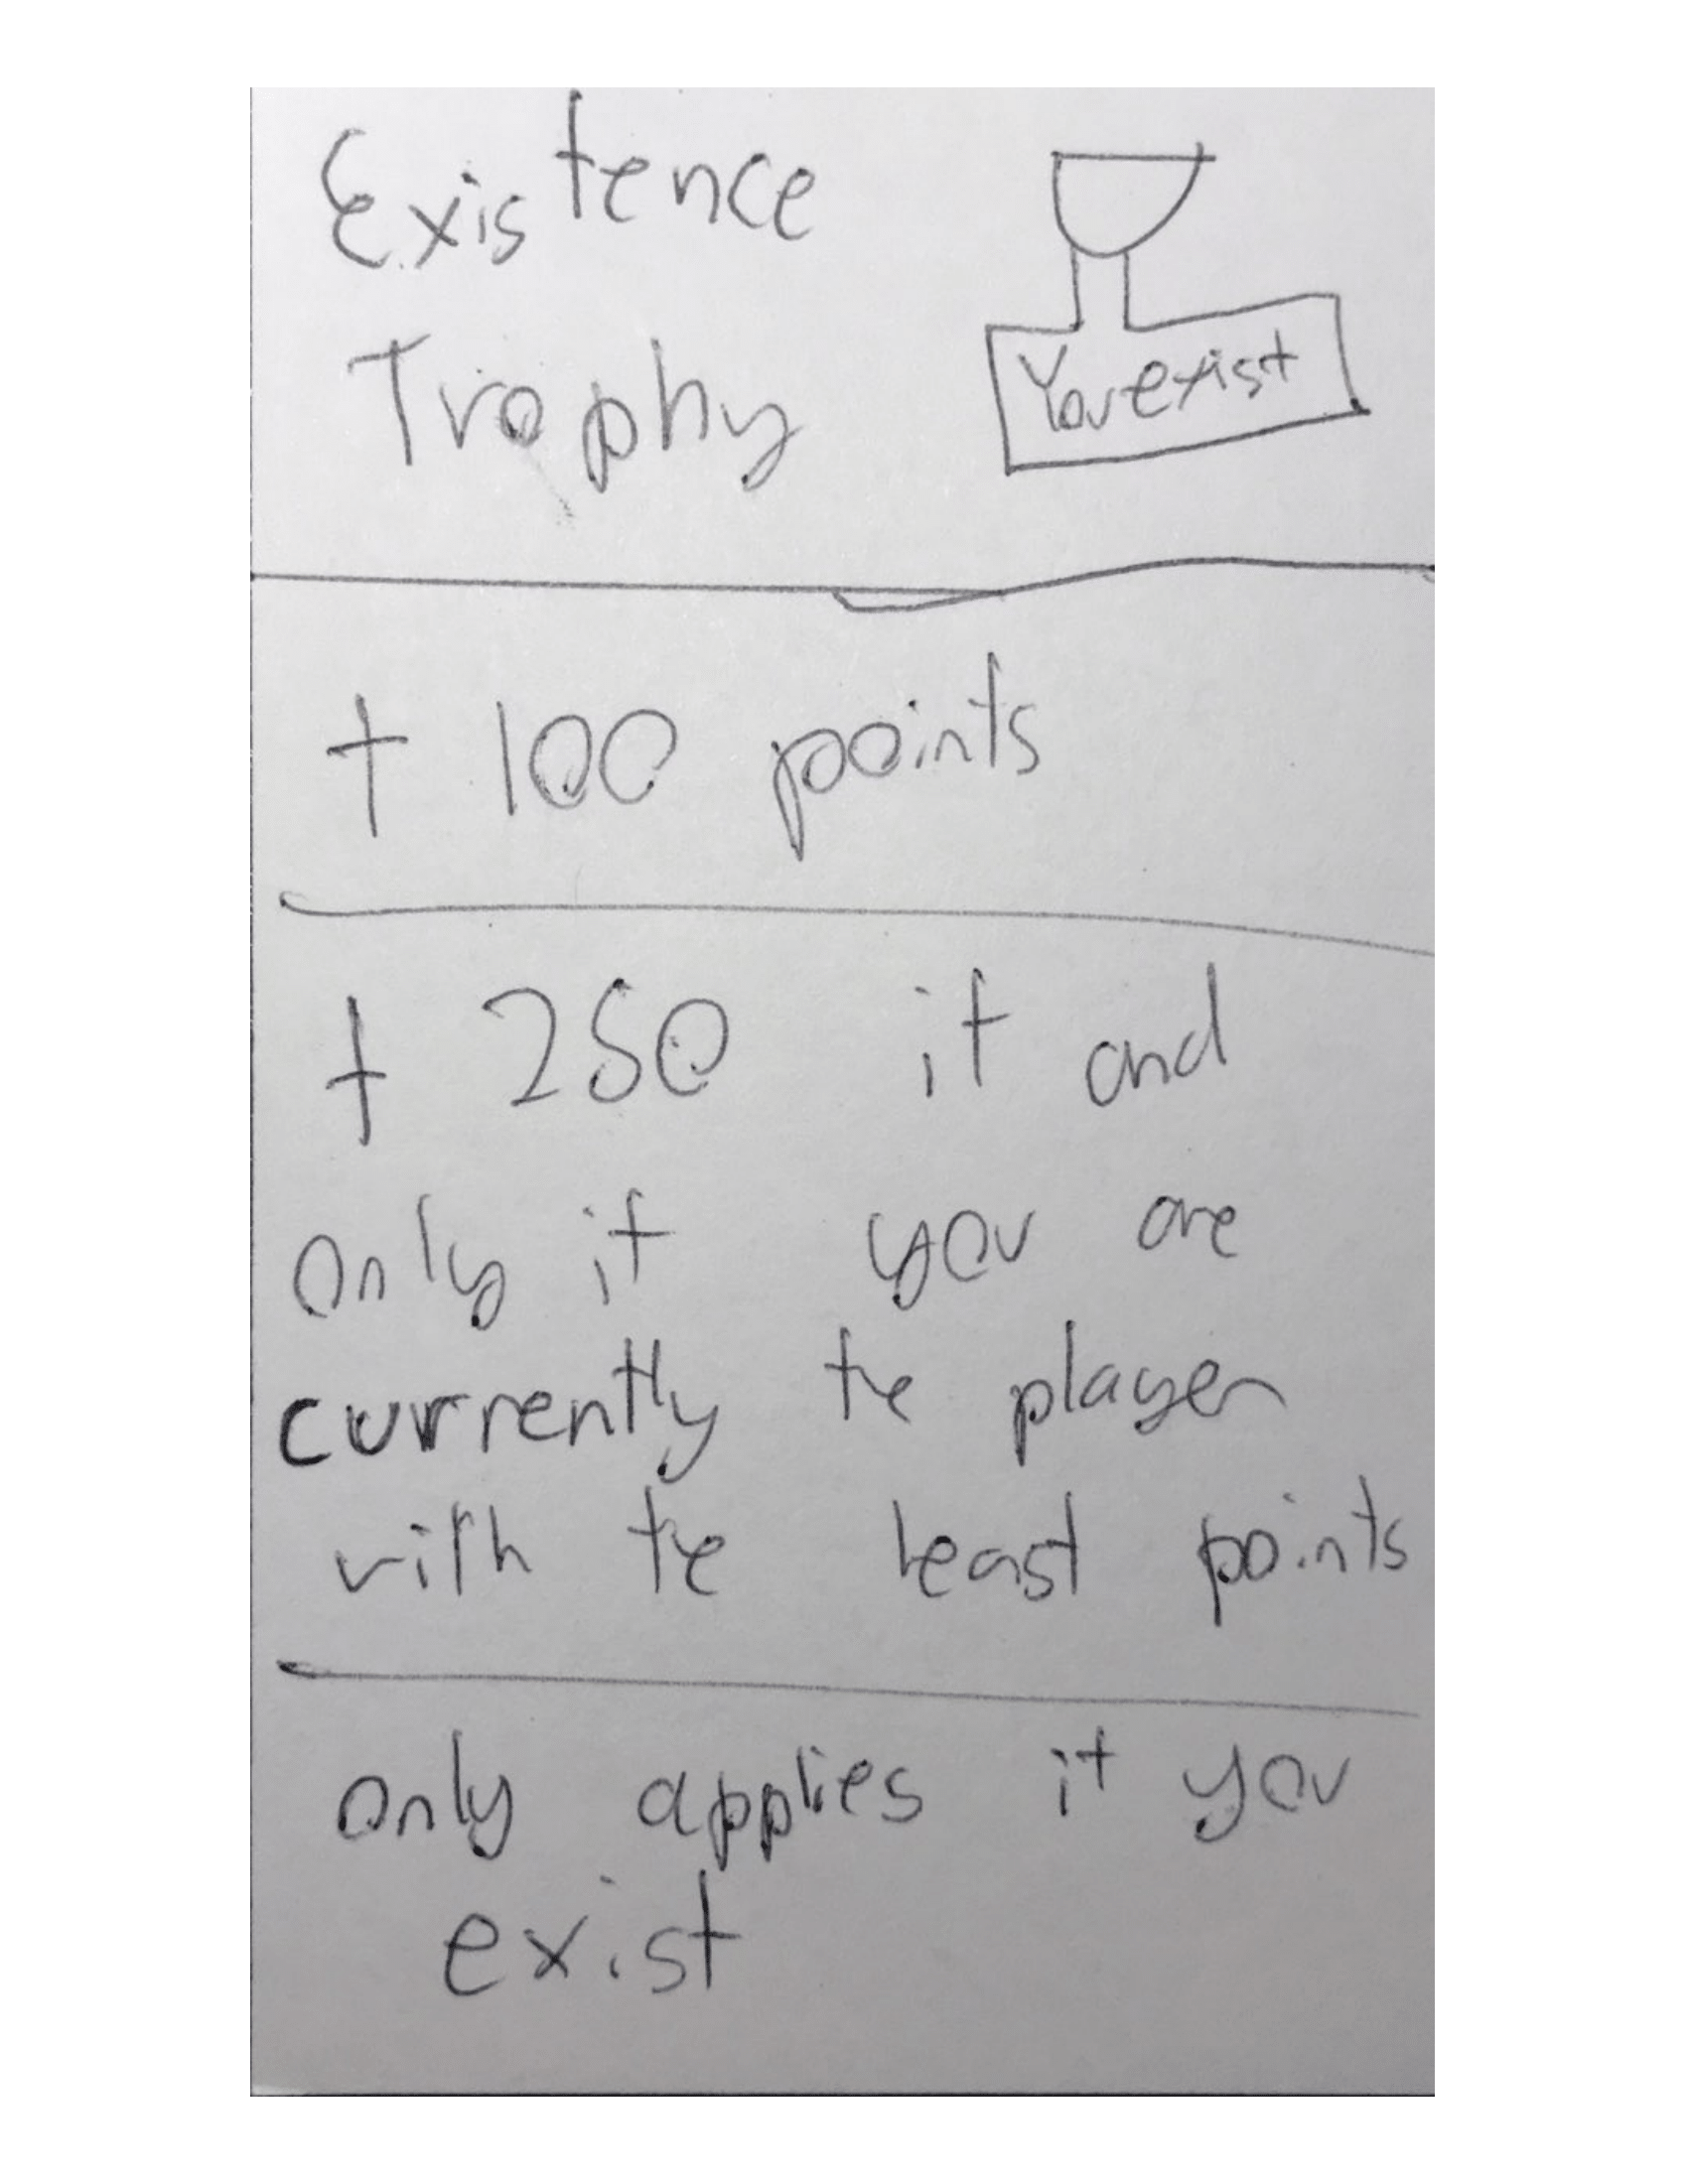 Existence
Trophy
You exist
+ 100 points
+ 250 if and
only if you are
currently the player
with the least points
only applies if you
exist